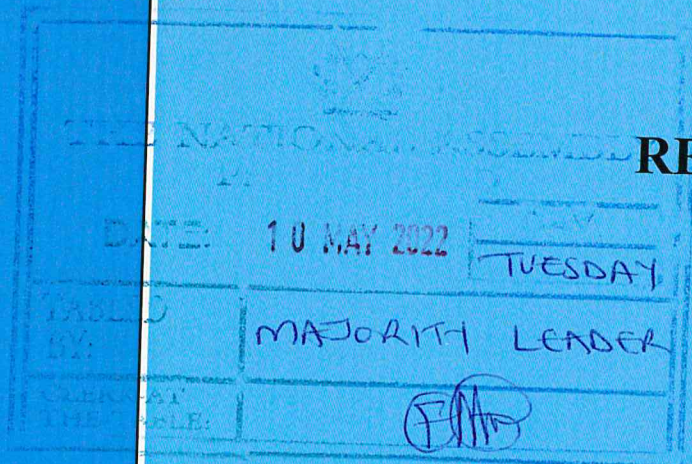 THE NATIONAL ASSEMBLY
RE
DATE: 10 MAY 2022
TUESDAY
TABLED BY:
MAJORITY LEADER
CLERK-AT THE-TABLE: